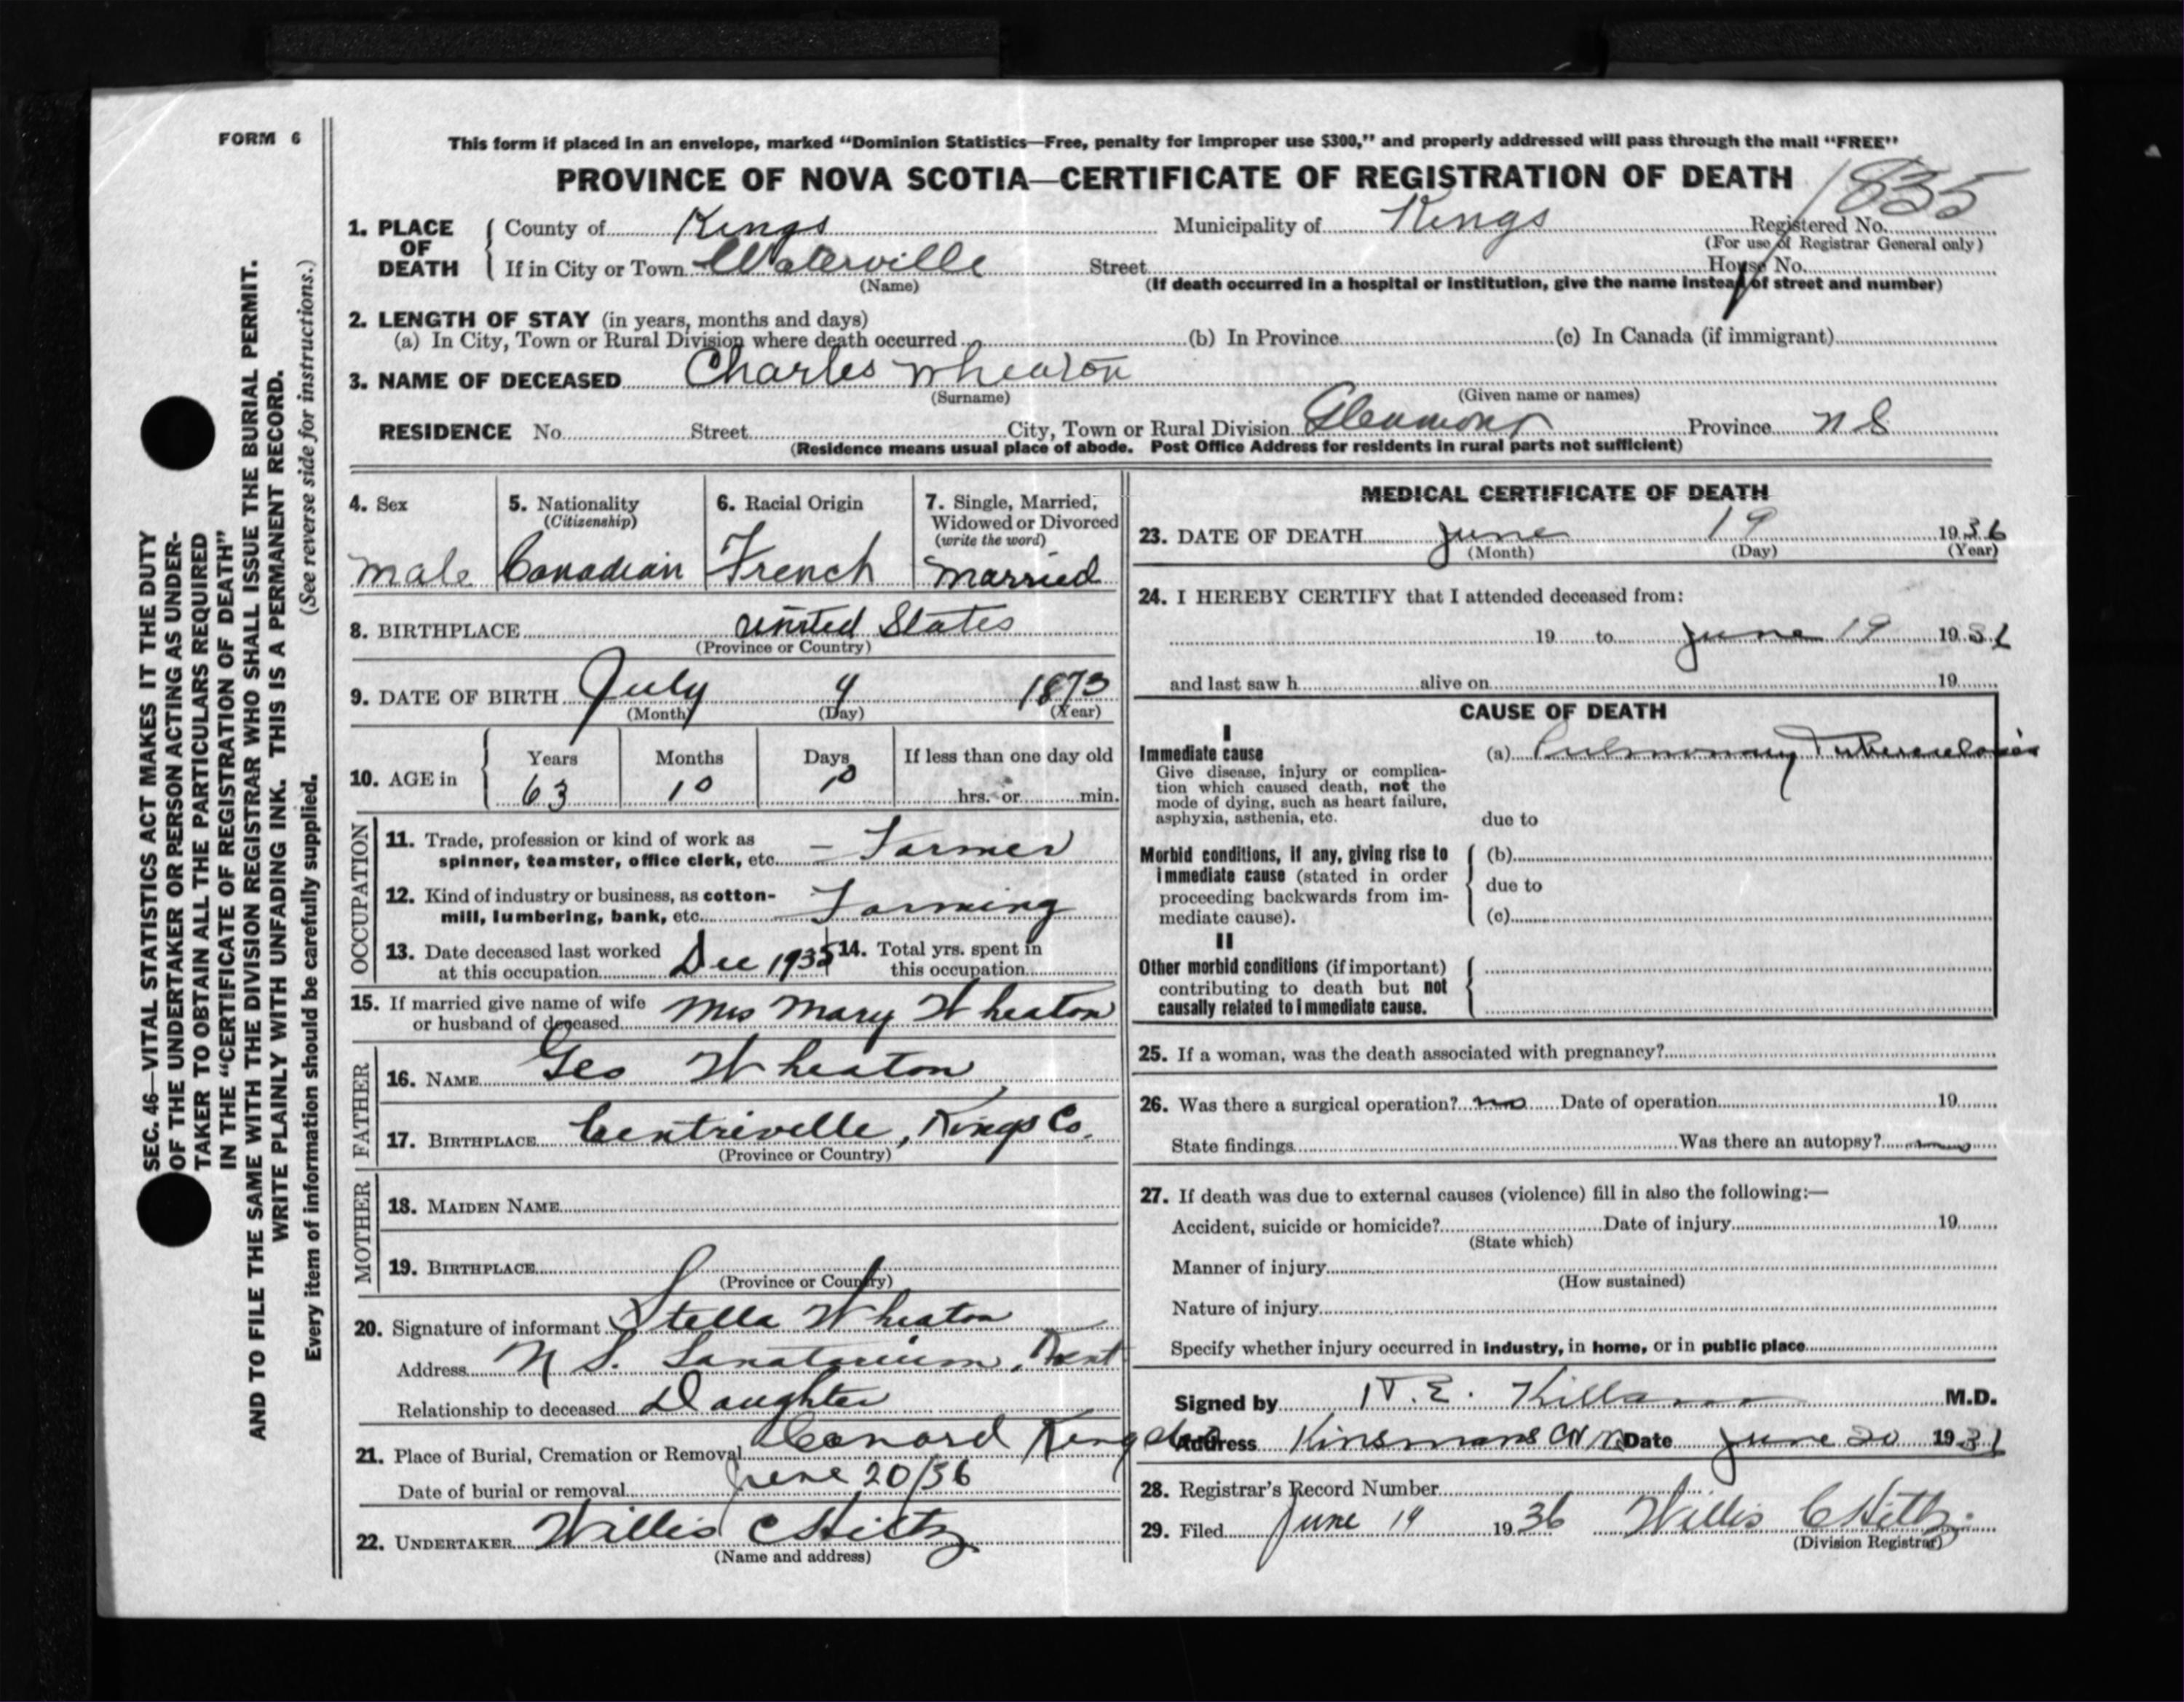 FORM 6
This form if placed in an envelope, marked "Dominion Statistics—Free, penalty for improper use $300," and properly addressed will pass through the mail "FREE"
PROVINCE OF NOVA SCOTIA—CERTIFICATE OF REGISTRATION OF DEATH
1835
1. PLACE OF DEATH
County of Kings Municipality of Kings Registered No.
(For use of Registrar General only)
If in City or Town Waterville Street House No.
(Name) (If death occurred in a hospital or institution, give the name instead of street and number)
2. LENGTH OF STAY (in years, months and days)
(a) In City, Town or Rural Division where death occurred (b) In Province (c) In Canada (if immigrant)
3. NAME OF DECEASED Charles Wheaton
(Surname) (Given name or names)
RESIDENCE No. Street City, Town or Rural Division Glenmont Province N S
(Residence means usual place of abode. Post Office Address for residents in rural parts not sufficient)
4. Sex
male
5. Nationality
(Citizenship)
Canadian
6. Racial Origin
French
7. Single, Married,
Widowed or Divorced
(write the word)
married
8. BIRTHPLACE United States
(Province or Country)
9. DATE OF BIRTH July 9 1873
(Month) (Day) (Year)
10. AGE in
Years Months Days If less than one day old
63 10 10 hrs. or min.
OCCUPATION
11. Trade, profession or kind of work as
spinner, teamster, office clerk, etc. – Farmer
12. Kind of industry or business, as cotton-
mill, lumbering, bank, etc. Farming
13. Date deceased last worked
at this occupation Dec 1935
14. Total yrs. spent in
this occupation
15. If married give name of wife
or husband of deceased Mrs Mary Wheaton
FATHER
16. NAME Geo Wheaton
17. BIRTHPLACE Centreville, Kings Co.
(Province or Country)
MOTHER
18. MAIDEN NAME
19. BIRTHPLACE
(Province or Country)
20. Signature of informant Stella Wheaton
Address N S. Sanatorium, Kent
Relationship to deceased Daughter
21. Place of Burial, Cremation or Removal Canard Kings
Date of burial or removal June 20/36
22. UNDERTAKER Willis C Hiltz
(Name and address)
MEDICAL CERTIFICATE OF DEATH
23. DATE OF DEATH June 19 1936
(Month) (Day) (Year)
24. I HEREBY CERTIFY that I attended deceased from:
19 to June 19 1936
and last saw h alive on 19
CAUSE OF DEATH
I
Immediate cause (a) Pulmonary Tuberculosis
Give disease, injury or complica-
tion which caused death, not the
mode of dying, such as heart failure,
asphyxia, asthenia, etc. due to
Morbid conditions, if any, giving rise to
immediate cause (stated in order
proceeding backwards from im-
mediate cause).
(b)
due to
(c)
II
Other morbid conditions (if important)
contributing to death but not
causally related to immediate cause.
25. If a woman, was the death associated with pregnancy?
26. Was there a surgical operation? no Date of operation 19
State findings Was there an autopsy? no
27. If death was due to external causes (violence) fill in also the following:—
Accident, suicide or homicide? Date of injury 19
(State which)
Manner of injury
(How sustained)
Nature of injury
Specify whether injury occurred in industry, in home, or in public place
Signed by Killam M.D.
Address Kinsmans Cn Date June 20 1936
28. Registrar's Record Number
29. Filed June 19 1936 Willis C Hiltz.
(Division Registrar)
SEC. 46—VITAL STATISTICS ACT MAKES IT THE DUTY
OF THE UNDERTAKER OR PERSON ACTING AS UNDER-
TAKER TO OBTAIN ALL THE PARTICULARS REQUIRED
IN THE "CERTIFICATE OF REGISTRATION OF DEATH"
AND TO FILE THE SAME WITH THE DIVISION REGISTRAR WHO SHALL ISSUE THE BURIAL PERMIT.
WRITE PLAINLY WITH UNFADING INK. THIS IS A PERMANENT RECORD.
Every item of information should be carefully supplied. (See reverse side for instructions.)